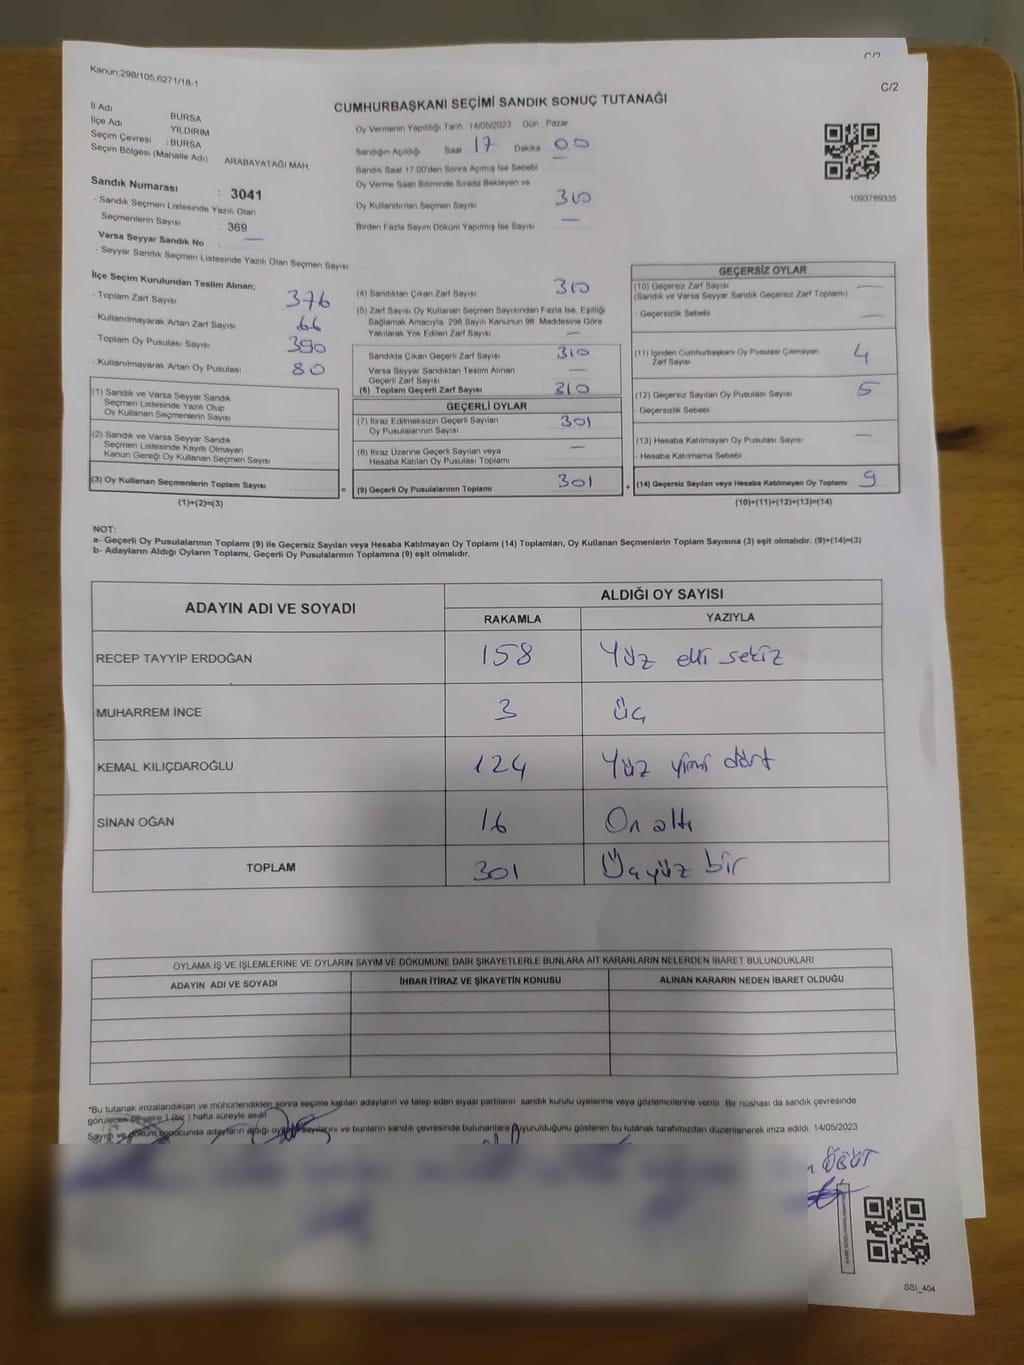 C/2
Kanun:298/105;6271/18-1
C/2
CUMHURBAŞKANI SEÇİMİ SANDIK SONUÇ TUTANAĞI
İl Adı BURSA
İlçe Adı YILDIRIM
Seçim Çevresi : BURSA
Seçim Bölgesi (Mahalle Adı) ARABAYATAĞI MAH
Sandık Numarası : 3041
- Sandık Seçmen Listesinde Yazılı Olan
Seçmenlerin Sayısı : 369
Varsa Seyyar Sandık No : —
- Seyyar Sandık Seçmen Listesinde Yazılı Olan Seçmen Sayısı
Oy Vermenin Yapıldığı Tarih 14/05/2023 Gün : Pazar
Sandığın Açıldığı Saat 17 Dakika 00
Sandık Saat 17.00'den Sonra Açımış İse Sebebi —
Oy Verme Saati Bitiminde Sırada Bekleyen ve
Oy Kullandırılan Seçmen Sayısı 310
Birden Fazla Sayım Döküm Yapılmış İse Sayısı —
1093789335
İlçe Seçim Kurulundan Teslim Alınan;
- Toplam Zarf Sayısı 376
- Kullanılmayarak Artan Zarf Sayısı 66
- Toplam Oy Pusulası Sayısı 390
- Kullanılmayarak Artan Oy Pusulası 80
(1) Sandık ve Varsa Seyyar Sandık
Seçmen Listesinde Yazılı Olup
Oy Kullanan Seçmenlerin Sayısı
(2) Sandık ve Varsa Seyyar Sandık
Seçmen Listesinde Kayıtlı Olmayan
Kanun Gereği Oy Kullanan Seçmen Sayısı
(3) Oy Kullanan Seçmenlerin Toplam Sayısı
(1)+(2)=(3)
(4) Sandıktan Çıkan Zarf Sayısı 310
(5) Zarf Sayısı Oy Kullanan Seçmen Sayısından Fazla İse, Eşitliği
Sağlamak Amacıyla, 298 Sayılı Kanunun 98. Maddesine Göre
Yakılarak Yok Edilen Zarf Sayısı —
Sandıkta Çıkan Geçerli Zarf Sayısı 310
Varsa Seyyar Sandıktan Teslim Alınan
Geçerli Zarf Sayısı —
(6) Toplam Geçerli Zarf Sayısı 310
GEÇERLİ OYLAR
(7) İtiraz Edilmeksizin Geçerli Sayılan
Oy Pusulalarının Sayısı 301
(8) İtiraz Üzerine Geçerli Sayılan veya
Hesaba Katılan Oy Pusulası Toplamı —
= (9) Geçerli Oy Pusulalarının Toplamı 301 +
GEÇERSİZ OYLAR
(10) Geçersiz Zarf Sayısı —
(Sandık ve Varsa Seyyar Sandık Geçersiz Zarf Toplamı)
- Geçersizlik Sebebi —
(11) İçinden Cumhurbaşkanı Oy Pusulası Çıkmayan
Zarf Sayısı 4
(12) Geçersiz Sayılan Oy Pusulası Sayısı 5
- Geçersizlik Sebebi
(13) Hesaba Katılmayan Oy Pusulası Sayısı —
- Hesaba Katılmama Sebebi
(14) Geçersiz Sayılan veya Hesaba Katılmayan Oy Toplamı 9
(10)+(11)+(12)+(13)=(14)
NOT:
a- Geçerli Oy Pusulalarının Toplamı (9) ile Geçersiz Sayılan veya Hesaba Katılmayan Oy Toplamı (14) Toplamları, Oy Kullanan Seçmenlerin Toplam Sayısına (3) eşit olmalıdır. (9)+(14)=(3)
b- Adayların Aldığı Oyların Toplamı, Geçerli Oy Pusulalarının Toplamına (9) eşit olmalıdır.
ADAYIN ADI VE SOYADI ALDIĞI OY SAYISI
RAKAMLA YAZIYLA
RECEP TAYYİP ERDOĞAN 158 Yüz elli sekiz
MUHARREM İNCE 3 Üç
KEMAL KILIÇDAROĞLU 124 Yüz yirmi dört
SİNAN OĞAN 16 On altı
TOPLAM 301 Üçyüz bir
OYLAMA İŞ VE İŞLEMLERİNE VE OYLARIN SAYIM VE DÖKÜMÜNE DAİR ŞİKAYETLERLE BUNLARA AİT KARARLARIN NELERDEN İBARET BULUNDUKLARI
ADAYIN ADI VE SOYADI İHBAR İTİRAZ VE ŞİKAYETİN KONUSU ALINAN KARARIN NEDEN İBARET OLDUĞU
*Bu tutanak imzalandıktan ve mühürlendikten sonra seçime katılan adayların ve talep eden siyasi partilerin sandık kurulu üyelerine veya gözlemcilerine verilir. Bir nüshası da sandık çevresinde
görülecek bir yere 1 (bir) hafta süreyle asılır
Sayım ve döküm sonucunda adayların aldığı oy sayılarını ve bunların sandık çevresinde bulunanlara duyurulduğunu gösteren bu tutanak tarafımızdan düzenlenerek imza edildi. 14/05/2023
SSI_404